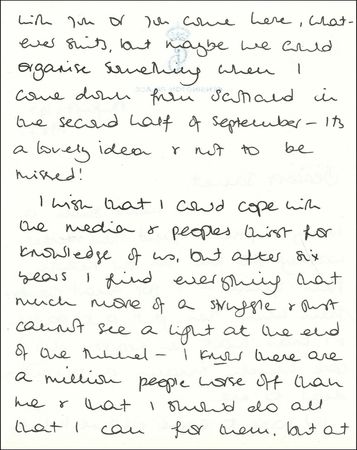 with you or you come here, what-
ever suits, but maybe we could
organise something when I
come down from Scotland in
the second half of September – its
a lovely idea & not to be
missed!
I wish that I could cope with
the media & peoples thirst for
knowledge of us, but after six
years I find everything that
much more of a struggle & just
cannot see a light at the end
of the tunnel – I know there are
a million people worse off than
me & that I should do all
that I can for them, but at